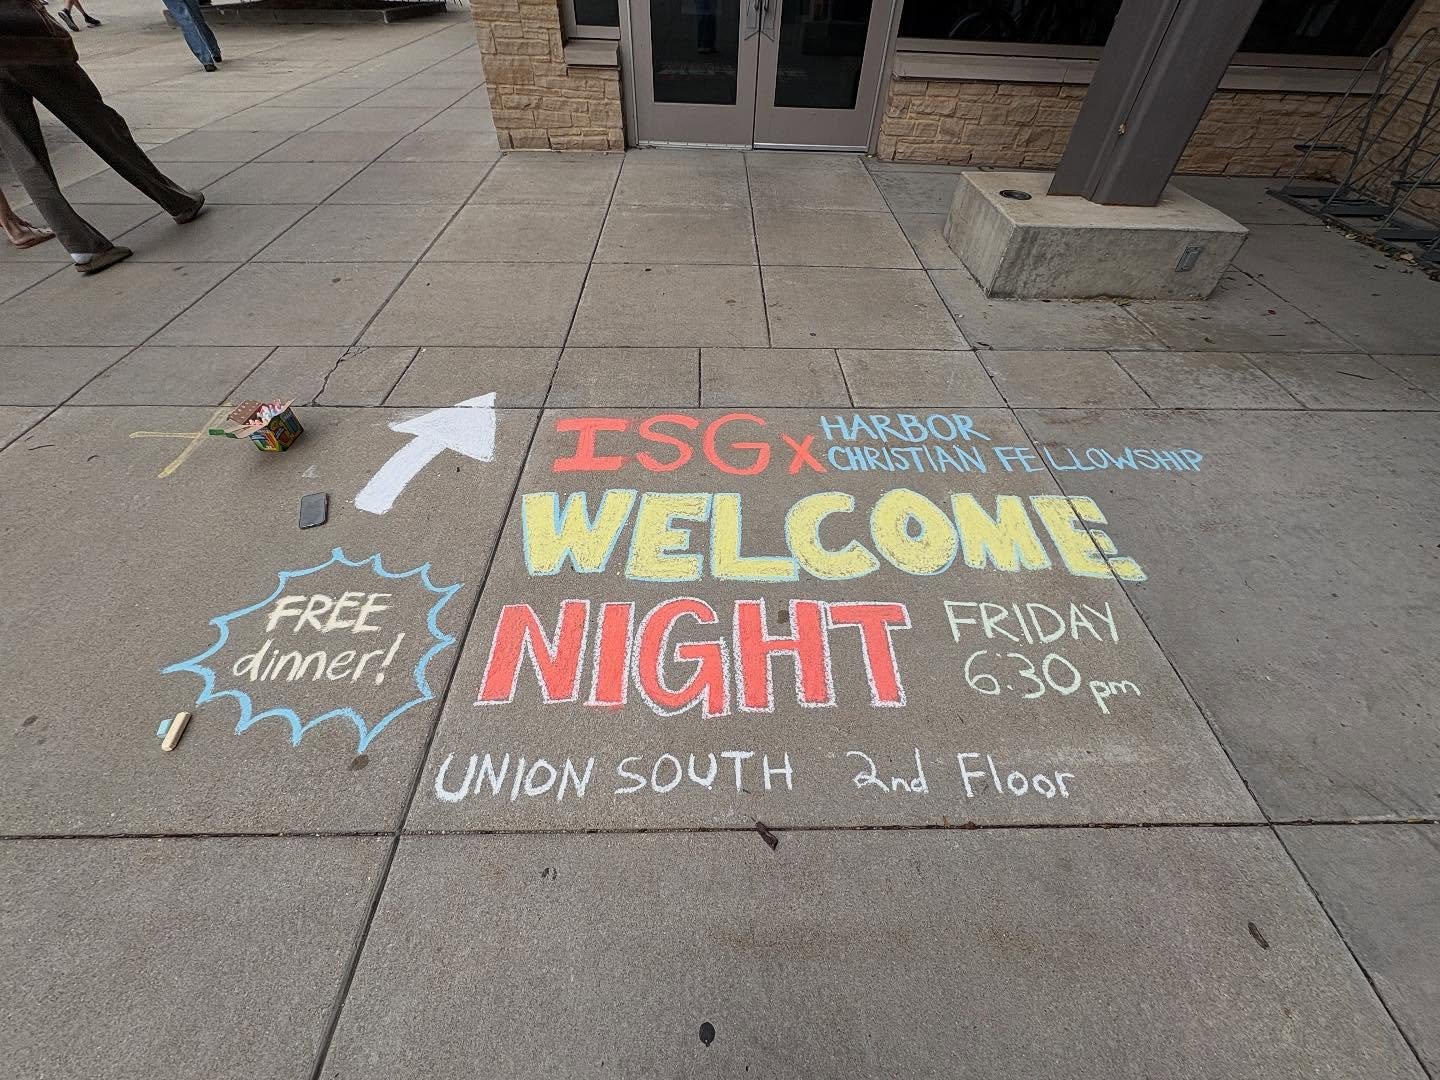 ISG x HARBOR
CHRISTIAN FELLOWSHIP
WELCOME
NIGHT
FRIDAY
6:30 pm
FREE
dinner!
UNION SOUTH 2nd Floor